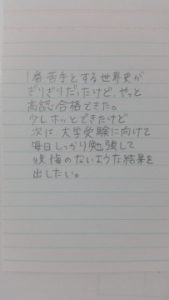 1番苦手とする世界史が
ぎりぎりだったけど、やっと
高認合格できた。
少しホッとできたけど
次は大学受験に向けて
毎日しっかり勉強して
後悔のないような結果を
出したい。